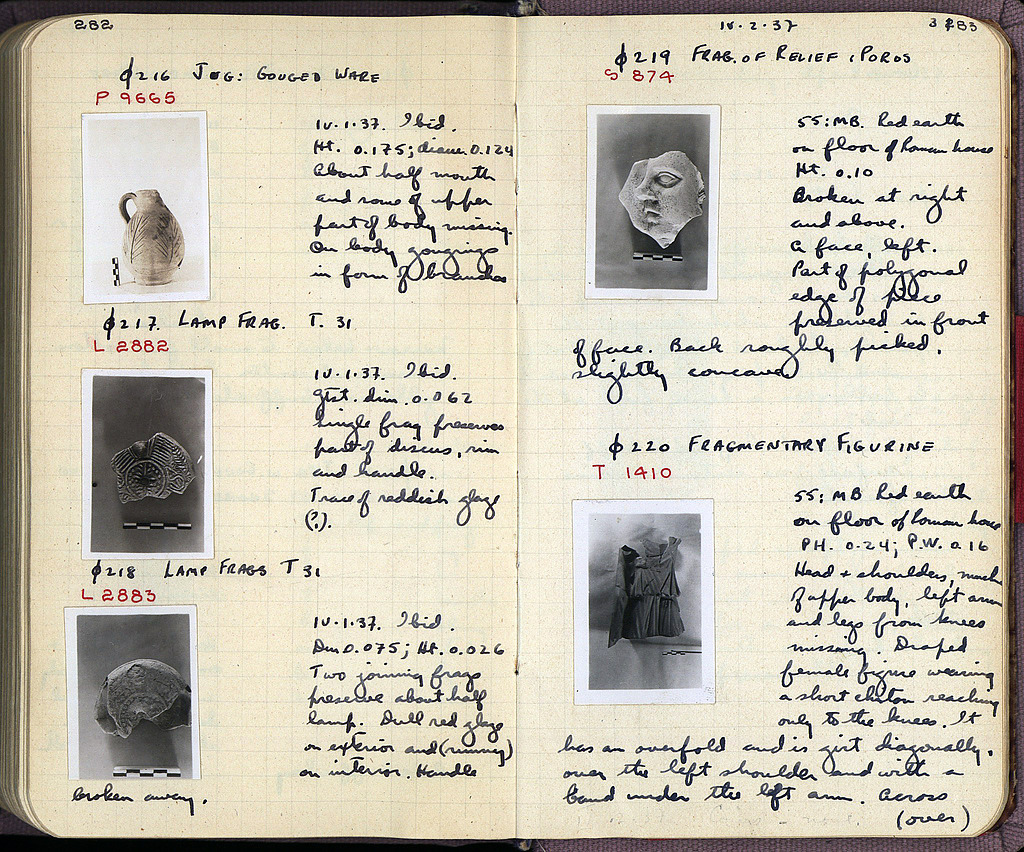 282
ϕ216 JUG: GOUGED WARE
P 9665
IV.1.37. Ibid.
Ht. 0.175; diam. 0.124
About half mouth
and some of upper
part of body missing.
On body gougings
in form of branches
ϕ217. LAMP FRAG. T. 31
L 2882
IV.1.37. Ibid.
Gtst. dim. 0.062
Single frag preserves
part of discus, rim
and handle.
Trace of reddish glaze
(?).
ϕ218 LAMP FRAGS T 31
L 2883
IV.1.37. Ibid.
Dim 0.075; Ht. 0.026
Two joining frags
preserve about half
lamp. Dull red glaze
on exterior and (runny)
on interior. Handle
broken away.
IV.2.37
283
ϕ219 FRAG. OF RELIEF: POROS
S 874
55:MB. Red earth
on floor of Roman house
Ht. 0.10
Broken at right
and above.
A face, left.
Part of polygonal
edge of piece
preserved in front
of face. Back roughly picked,
slightly concave
ϕ220 FRAGMENTARY FIGURINE
T 1410
55:MB Red earth
on floor of Roman house
PH. 0.24; P.W. 0.16
Head + shoulders, much
of upper body, left arm
and legs from knees
missing. Draped
female figure wearing
a short chiton reaching
only to the knees. It
has an overfold and is girt diagonally.
over the left shoulder and with a
band under the left arm. Across
(over)